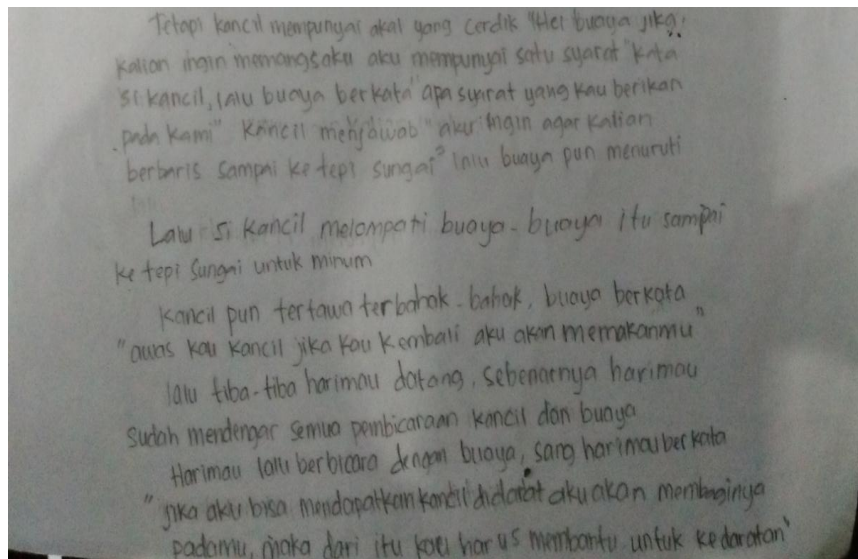 Tetapi kancil mempunyai akal yang cerdik "Hei buaya jika
kalian ingin memangsaku aku mempunyai satu syarat" kata
si kancil, lalu buaya berkata "apa syarat yang kau berikan
pada kami" Kancil menjawab "aku ingin agar kalian
berbaris sampai ke tepi sungai" lalu buaya pun menuruti
Lalu si kancil melompati buaya-buaya itu sampai
ke tepi sungai untuk minum
Kancil pun tertawa terbahak-bahak, buaya berkata
"awas kau kancil jika kau kembali aku akan memakanmu"
lalu tiba-tiba harimau datang, sebenarnya harimau
sudah mendengar semua pembicaraan kancil dan buaya
Harimau lalu berbicara dengan buaya, sang harimau berkata
"jika aku bisa mendapatkan kancil didarat aku akan membaginya
padamu, maka dari itu kau harus membantu untuk kedaratan"